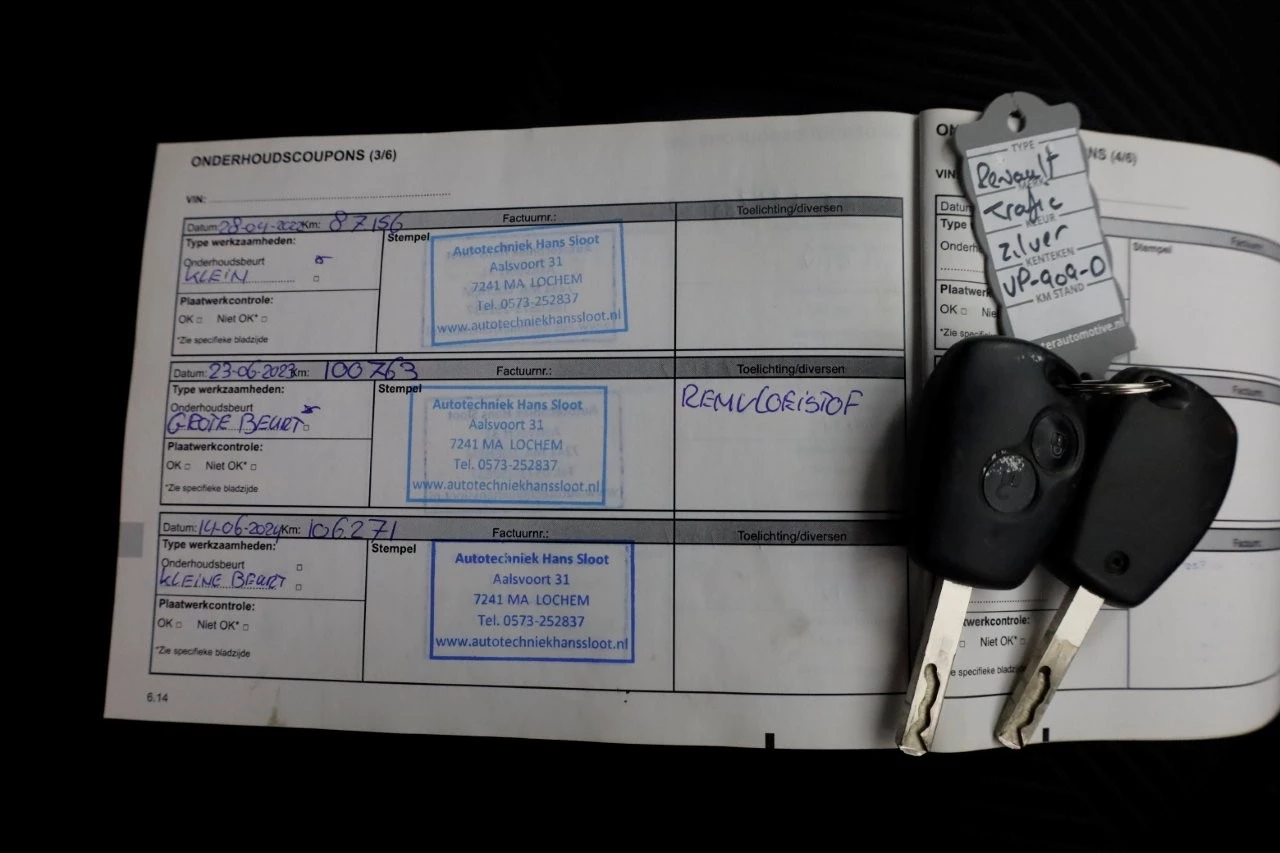 ONDERHOUDSCOUPONS (3/6)
VIN:
Datum: 28-04-2022 Km: 87156 Factuurnr.: Toelichting/diversen
Type werkzaamheden:
Onderhoudsbeurt
KLEIN
Plaatwerkcontrole:
OK □ Niet OK* □
*Zie specifieke bladzijde
Stempel
Autotechniek Hans Sloot
Aalsvoort 31
7241 MA LOCHEM
Tel. 0573-252837
www.autotechniekhanssloot.nl
Datum: 23-06-2023 Km: 100763 Factuurnr.: Toelichting/diversen
Type werkzaamheden:
Onderhoudsbeurt
GROTE BEURT
Plaatwerkcontrole:
OK □ Niet OK* □
*Zie specifieke bladzijde
Stempel
Autotechniek Hans Sloot
Aalsvoort 31
7241 MA LOCHEM
Tel. 0573-252837
www.autotechniekhanssloot.nl
REMVLOEISTOF
Datum: 14-06-2024 Km: 106.271 Factuurnr.: Toelichting/diversen
Type werkzaamheden:
Onderhoudsbeurt
KLEINE BEURT
Plaatwerkcontrole:
OK □ Niet OK* □
*Zie specifieke bladzijde
Stempel
Autotechniek Hans Sloot
Aalsvoort 31
7241 MA LOCHEM
Tel. 0573-252837
www.autotechniekhanssloot.nl
6.14
ON
NS (4/6)
VIN
Datu
Type
Onderh
Plaatwerk
OK □ Nie
*Zie specifi
Stempel
Factuurn
Factuurn
Factuurn
twerkcontrole:
Niet OK* □
e specifieke bladzijde
TYPE
Renault
Trafic
KLEUR
zilver
KENTEKEN
VP-909-D
KM STAND
terautomotive.nl